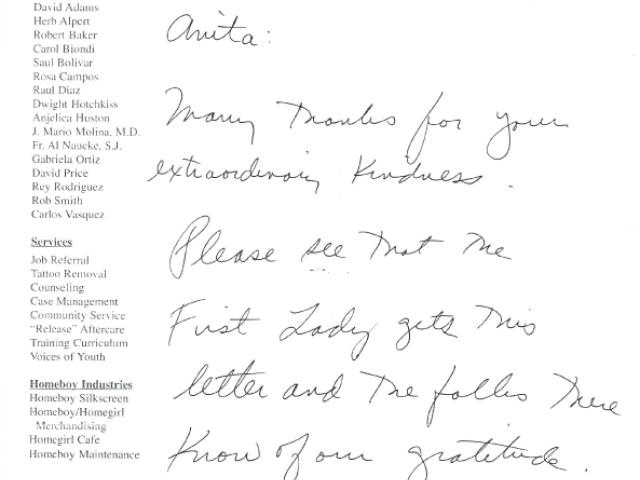 David Adams
Herb Alpert
Robert Baker
Carol Biondi
Saul Bolivar
Rosa Campos
Raul Diaz
Dwight Hotchkiss
Anjelica Huston
J. Mario Molina, M.D.
Fr. Al Naucke, S.J.
Gabriela Ortiz
David Price
Rey Rodriguez
Rob Smith
Carlos Vasquez
Services
Job Referral
Tattoo Removal
Counseling
Case Management
Community Service
"Release" Aftercare
Training Curriculum
Voices of Youth
Homeboy Industries
Homeboy Silkscreen
Homeboy/Homegirl
Merchandising
Homegirl Cafe
Homeboy Maintenance
Anita:
Many Thanks for your
extraordinary Kindness.
Please see That The
First Lady gets This
letter and The folks There
Know of our gratitude.